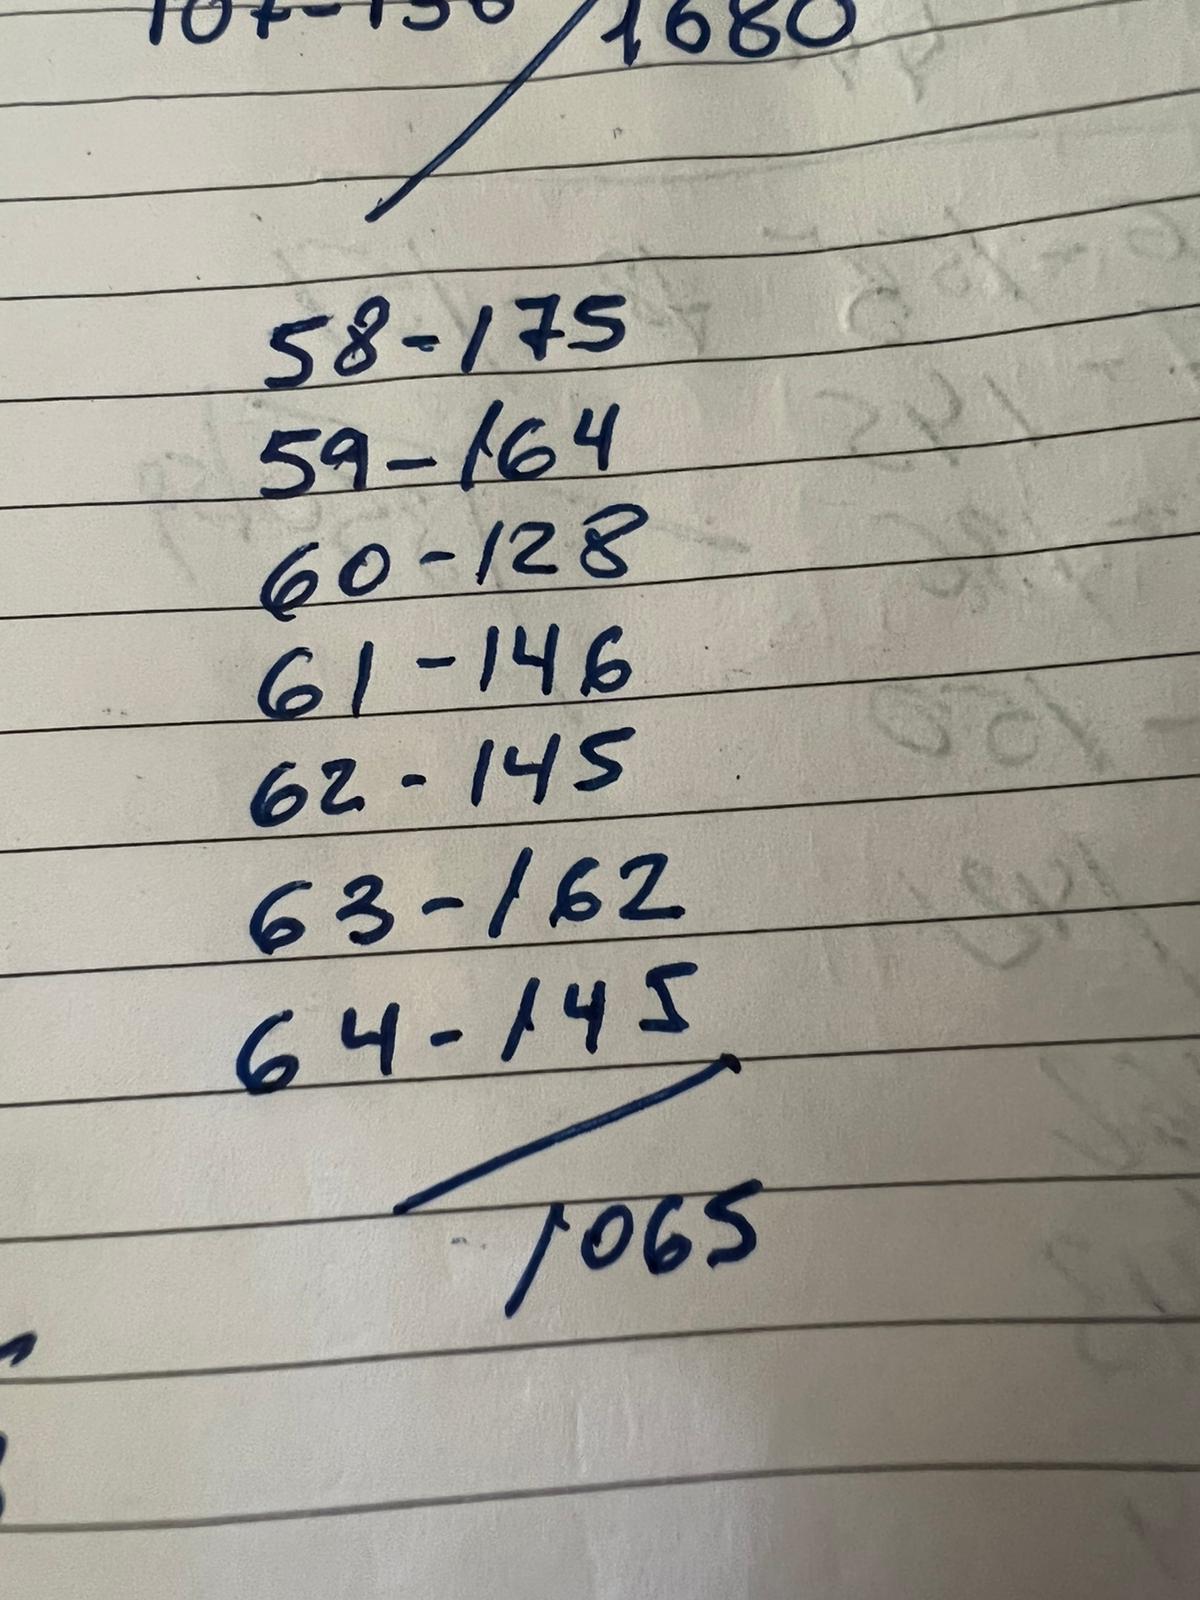 107-156 / 1680
58-175
59-164
60-128
61-146
62-145
63-162
64-145
1065